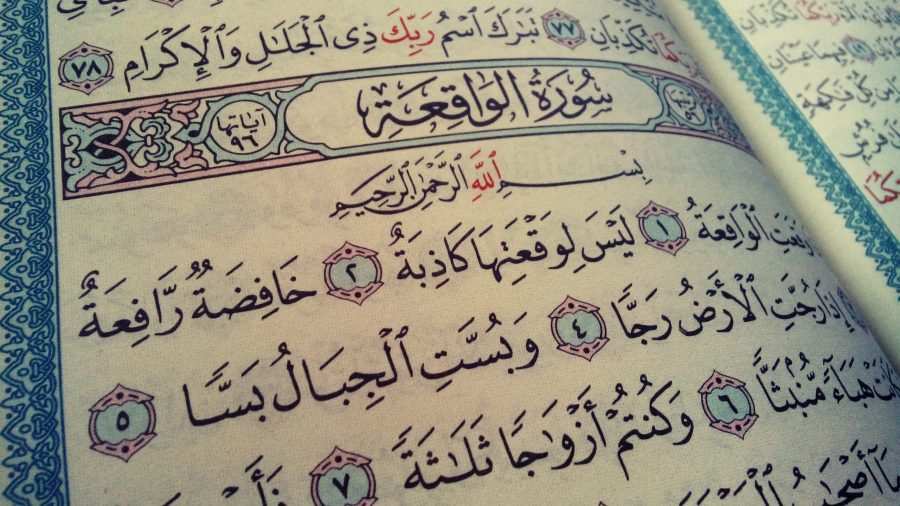 تُكَذِّبَانِ ٧٧ تَبَٰرَكَ ٱسْمُ رَبِّكَ ذِى ٱلْجَلَٰلِ وَٱلْإِكْرَامِ ٧٨
سُورَةُ الوَاقِعَةِ
آيَاتُهَا ٩٦
بِسْمِ ٱللَّهِ ٱلرَّحْمَٰنِ ٱلرَّحِيمِ
وَقَعَتِ ٱلْوَاقِعَةُ ١ لَيْسَ لِوَقْعَتِهَا كَاذِبَةٌ ٢ خَافِضَةٌ رَّافِعَةٌ
إِذَا رُجَّتِ ٱلْأَرْضُ رَجًّا ٤ وَبُسَّتِ ٱلْجِبَالُ بَسًّا ٥
هَبَآءً مُّنۢبَثًّا ٦ وَكُنتُمْ أَزْوَٰجًا ثَلَٰثَةً ٧
مَآ أَصْحَٰبُ